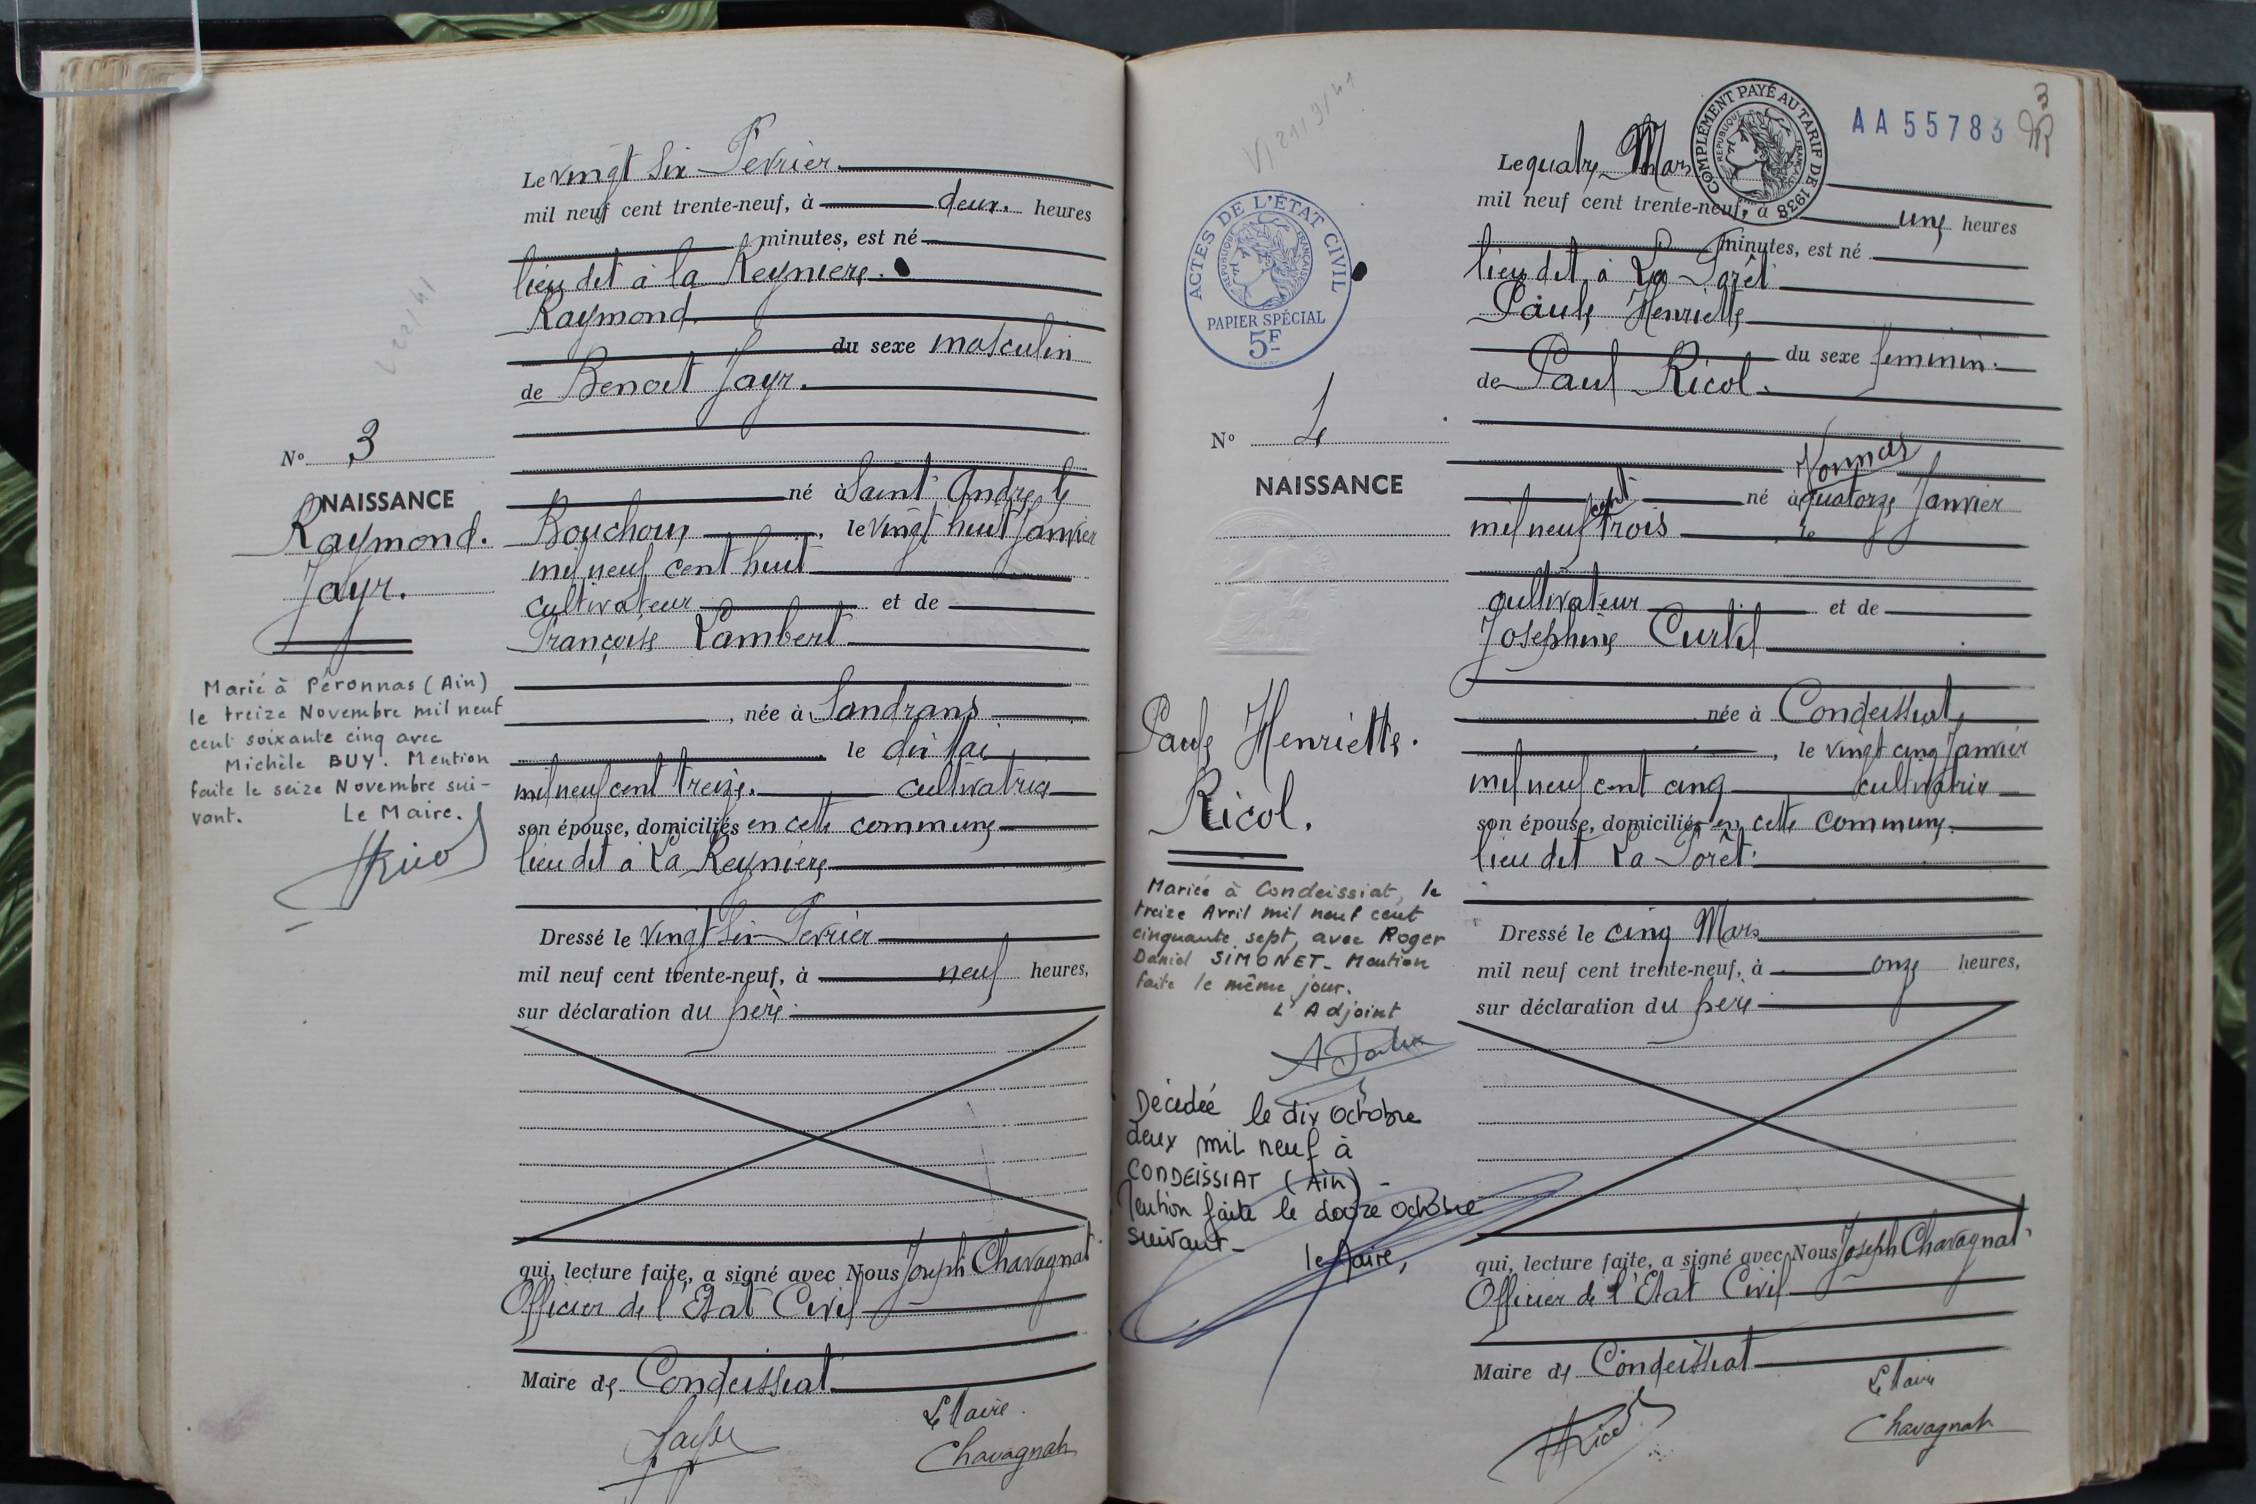 Le vingt six Fevrier
mil neuf cent trente-neuf, à deux. heures
minutes, est né
lieu dit à la Reyniere.
Raymond
du sexe masculin
de Benoit Jayr.
N° 3
NAISSANCE
Raymond.
Jayr.
né à Saint André le
Bouchoux, le vingt huit Janvier
mil neuf cent huit
cultivateur et de
Françoise Lambert
, née à Sandrans
le dix Mai
mil neuf cent treize. cultivatrice
son épouse, domiciliés en cette commune
lieu dit à La Reyniere
Marié à Péronnas (Ain)
le treize Novembre mil neuf
cent soixante cinq avec
Michèle BUY. Mention
faite le seize Novembre sui-
vant. Le Maire.
Dressé le vingt six Fevrier
mil neuf cent trente-neuf, à neuf heures,
sur déclaration du père
qui, lecture faite, a signé avec Nous Joseph Chavagnat
Officier de l'Etat Civil
Maire de Condeissiat
Le Maire.
Chavagnat
3
AA 55783
COMPLÉMENT PAYÉ AU TARIF DE 1938
RÉPUBLIQUE FRANÇAISE
Le quatre Mars
mil neuf cent trente-neuf, à une heures
minutes, est né
lieu dit à La Forêt
Paule Henriette
du sexe feminin.
de Paul Ricol.
ACTES DE L'ÉTAT CIVIL
RÉPUBLIQUE FRANÇAISE
PAPIER SPÉCIAL
5F
N° 4
NAISSANCE
Vonnas
né à quatorze Janvier
mil neuf cent trois, le
cultivateur et de
Josephine Curtil
née à Condeissiat
, le vingt cinq Janvier
mil neuf cent cinq cultivatrice
son épouse, domiciliés en cette commune.
lieu dit La Forêt.
Paule Henriette.
Ricol.
Mariée à Condeissiat, le
treize Avril mil neuf cent
cinquante sept, avec Roger
Daniel SIMONET. Mention
faite le même jour.
L'Adjoint
Décédée le dix octobre
deux mil neuf à
CONDEISSIAT (Ain) -
Mention faite le douze octobre
suivant -
le Maire,
Dressé le cinq Mars
mil neuf cent trente-neuf, à onze heures,
sur déclaration du père
qui, lecture faite, a signé avec Nous Joseph Chavagnat
Officier de l'Etat Civil
Maire de Condeissiat
Le Maire
Chavagnat